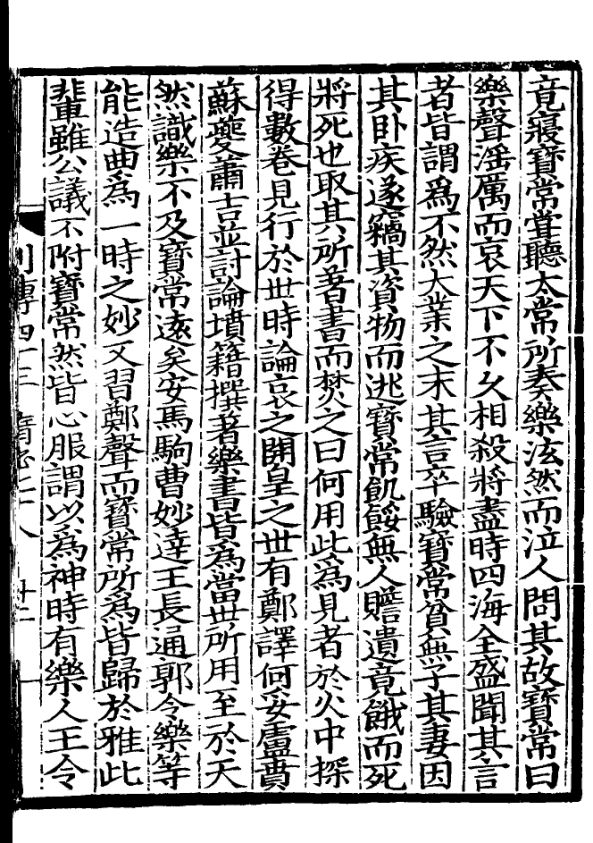 竟寢寶常甞聽太常所奏樂泫然而泣人問其故寶常曰
樂聲滛厲而哀天下不久相殺將盡時四海全盛聞其言
者皆謂爲不然大業之末其言卒驗寶常貧無子其妻因
其卧疾遂竊其資物而逃寶常飢餒無人贍遺竟餓而死
將死也取其所著書而焚之曰何用此爲見者於火中探
得數卷見行於世時論哀之開皇之世有鄭譯何妥盧賁
蘇夔蕭吉並討論墳籍撰著樂書皆爲當世所用至於天
然識樂不及寶常遠矣安馬駒曹妙達王長通郭令樂等
能造曲爲一時之妙又習鄭聲而寶常所爲皆歸於雅此
輩雖公議不附寶常然皆心服謂以爲神時有樂人王令
列傳四十三